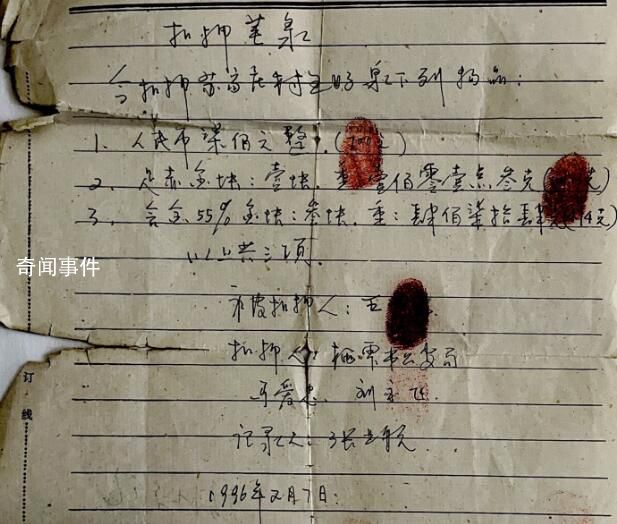 扣押笔录
今扣押苏家庄村王好泉下列物品：
1、人民币柒佰元整、(700元)
2、足赤金块：壹块，重：壹佰零壹点叁克(克)
3、含金55%金块：叁块，重：肆佰柒拾肆克(474元)
以上共三项。
奇闻事件
被扣押人：王
扣押人：栖霞市公安局
刘
订
线
记录人：张
1996年2月7日